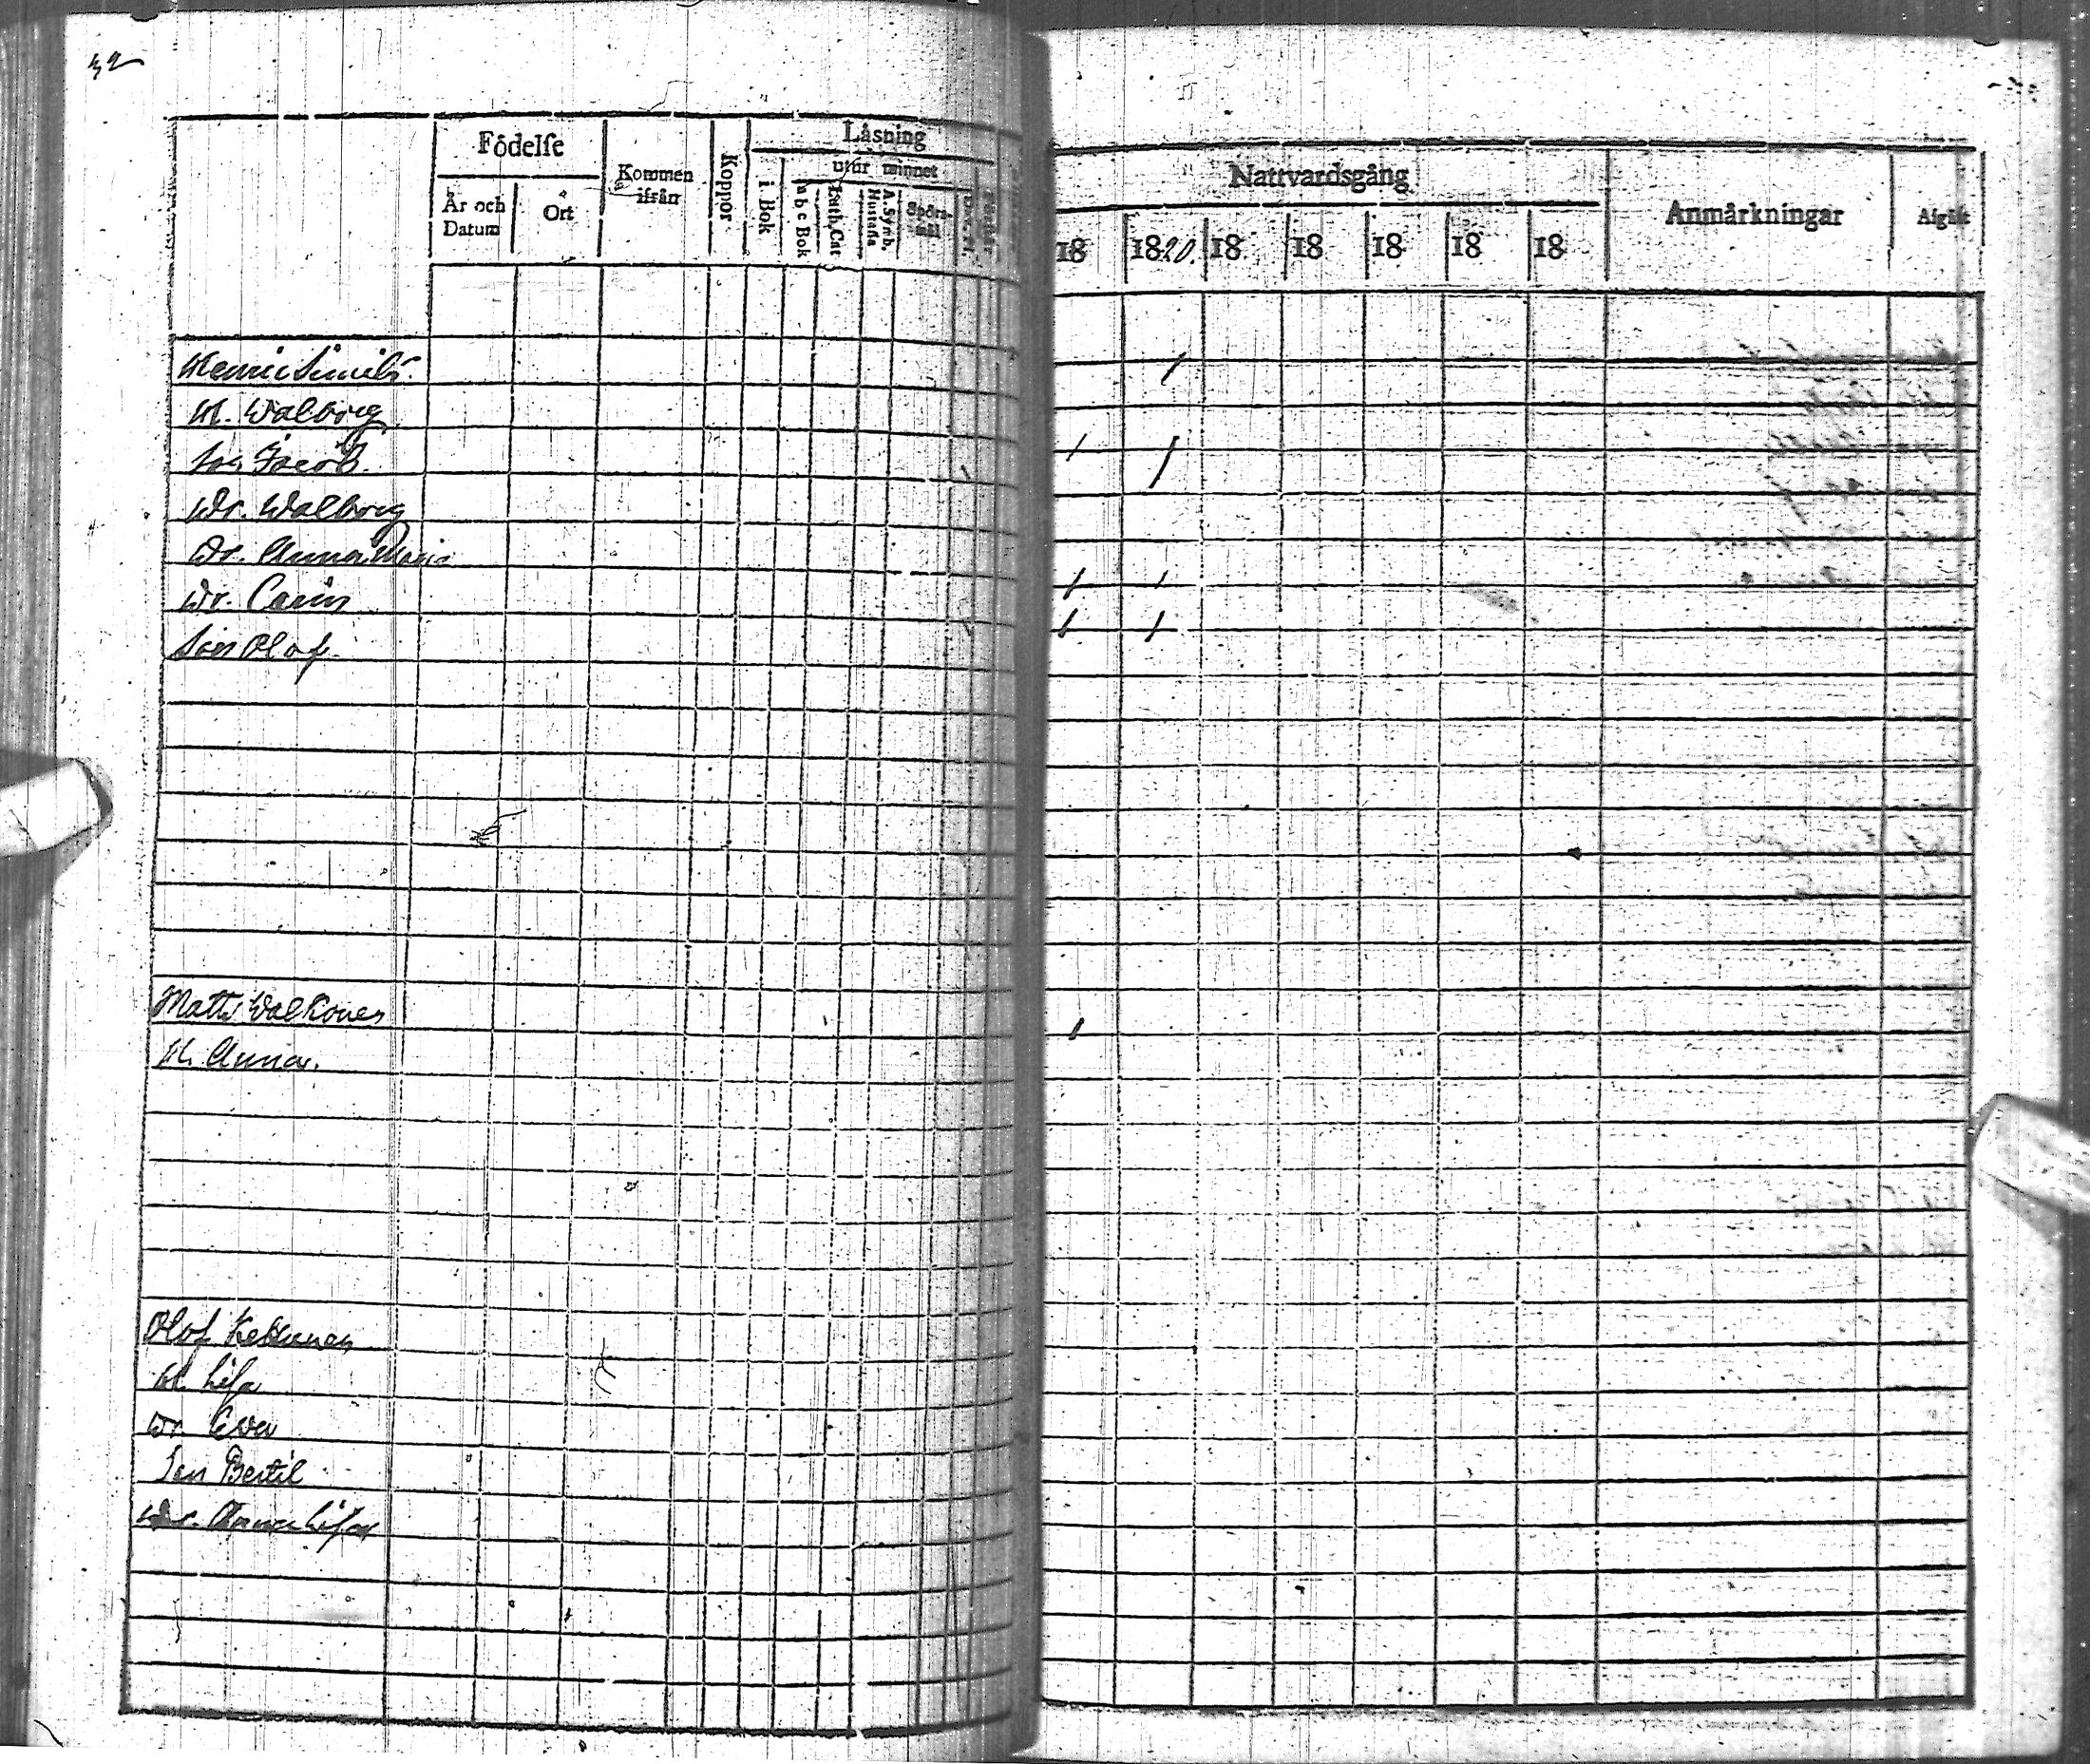 32
Födelse
Kommen ifrån
Koppor
Läsning
utur minnet
År och Datum
Ort
i Bok
a b c Bok
Luth. Cat
A. Symb. Hustafla
Spörsmål
Nattvardsgång
Anmärkningar
Afgått
18
1820.
18
18
18
18
18
H. Walborg
Son Jacob.
Dr. Walborg
Dr. Anna Maria
Dr. Carin
Son Olof
Matts Walkonen
H. Anna.
Olof
H. Lisa
Dr. Eva
Son Bertil
Dr. Anna Lisa